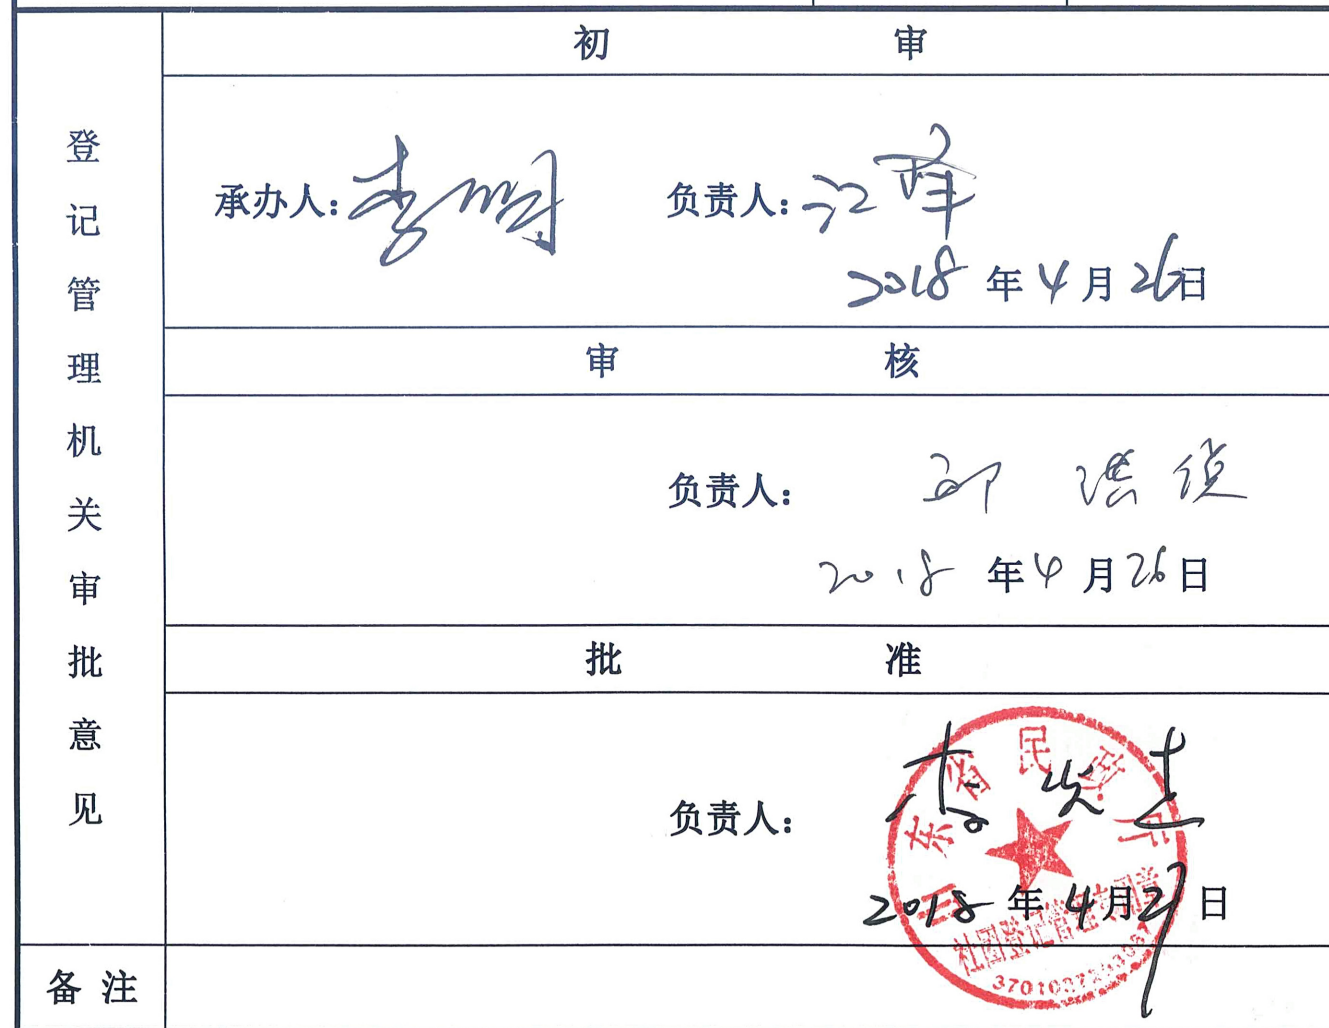 登记管理机关审批意见
初 审
承办人：李明 负责人：江峰
2018 年 4 月 26 日
审 核
负责人：邱 洪
2018 年 4 月 26 日
批 准
负责人：李
2018 年 4 月 27 日
山东省民政厅
社团登记管理专用章
备 注